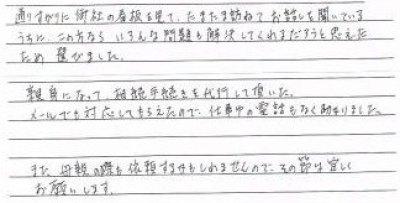 通りすがりに御社の看板を見て、たまたま訪ねてお話しを聞いている
うちに、この方なら いろんな問題も解決してくれるだろうと思えた
ため 選びました。
親身になって、相続手続きを代行して頂いた。
メールでも対応してもらえたので、仕事中の電話もなく助かりました。
また、母親の際も依頼するかもしれませんので、その節は宜しく
お願いします。